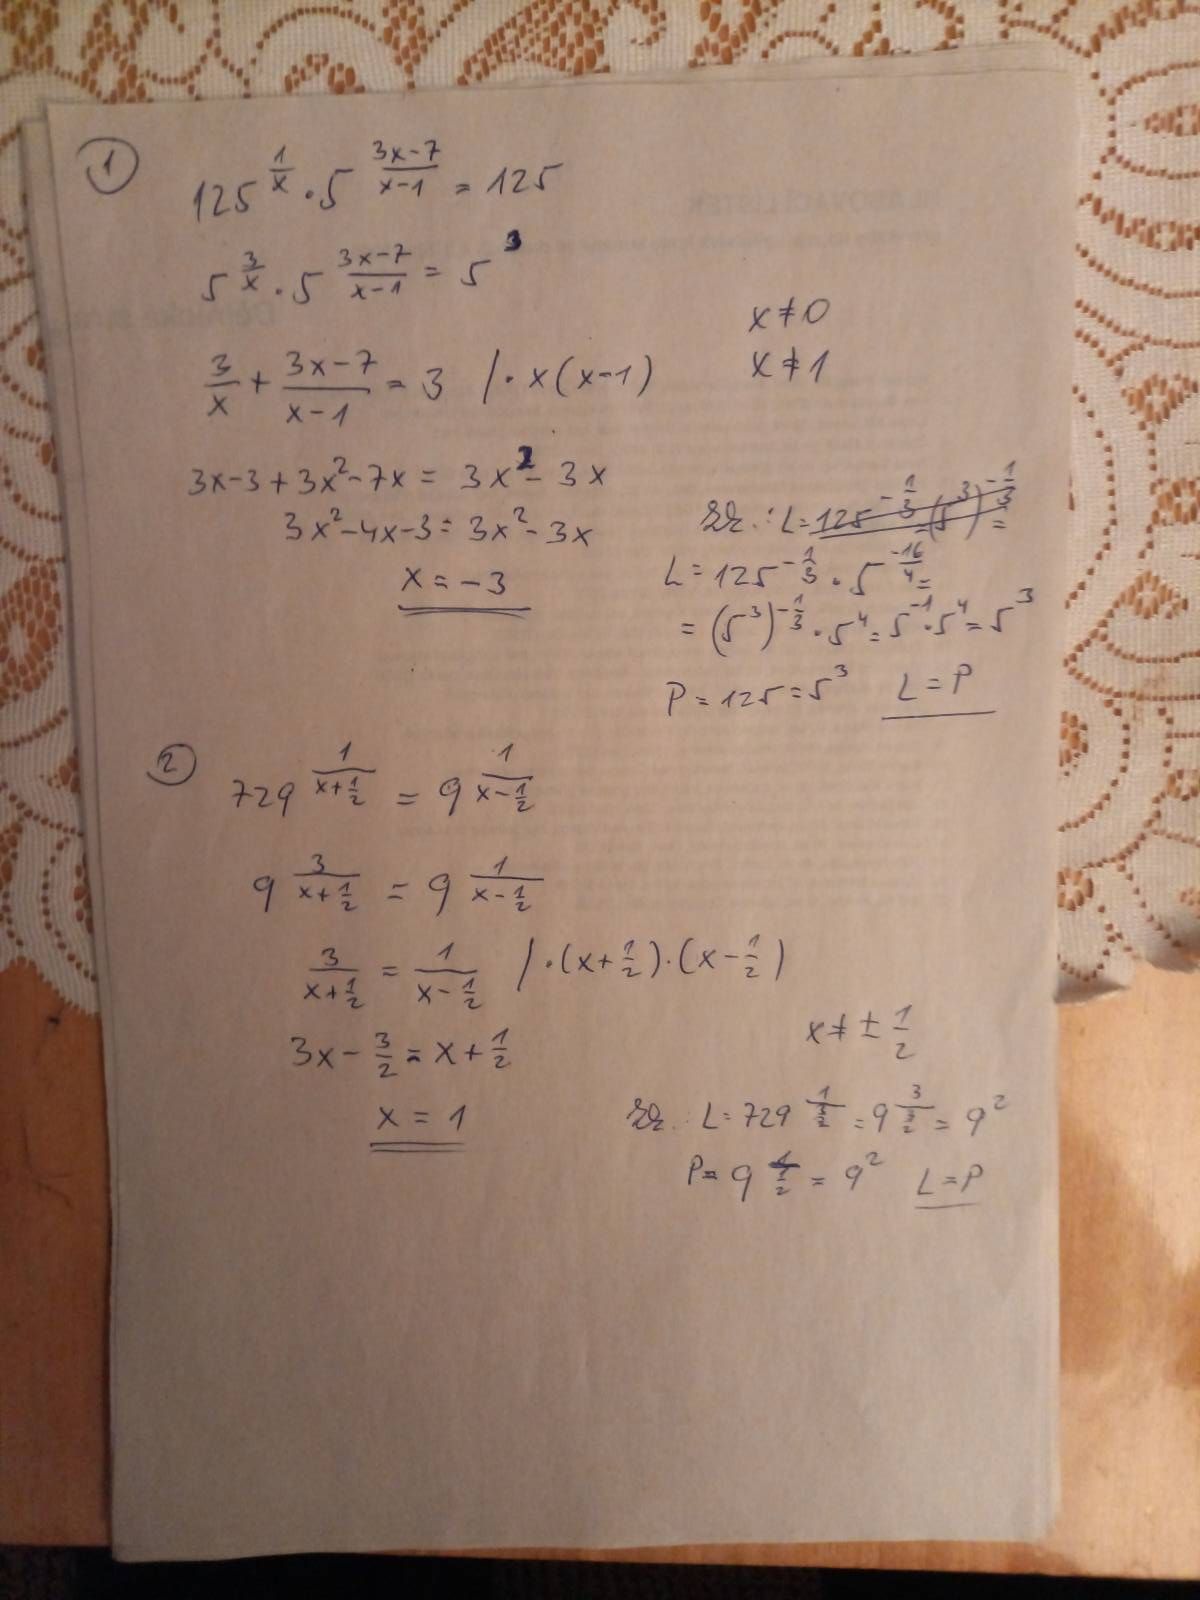 1
125^{\frac{1}{x}} · 5^{\frac{3x-7}{x-1}} = 125
5^{\frac{3}{x}} · 5^{\frac{3x-7}{x-1}} = 5^3
x ≠ 0
\frac{3}{x} + \frac{3x-7}{x-1} = 3 / · x(x-1)
x ≠ 1
3x-3+3x^2-7x = 3x^2-3x
3x^2-4x-3 = 3x^2-3x
x = -3
zk.: L = 125^{-\frac{1}{3}} = (5^3)^{-\frac{1}{3}} =
L = 125^{-\frac{1}{3}} · 5^{\frac{-16}{4}} =
= (5^3)^{-\frac{1}{3}} · 5^4 = 5^{-1} · 5^4 = 5^3
P = 125 = 5^3 L = P
2
729^{\frac{1}{x+\frac{1}{2}}} = 9^{\frac{1}{x-\frac{1}{2}}}
9^{\frac{3}{x+\frac{1}{2}}} = 9^{\frac{1}{x-\frac{1}{2}}}
\frac{3}{x+\frac{1}{2}} = \frac{1}{x-\frac{1}{2}} / · (x+\frac{1}{2}) · (x-\frac{1}{2})
x ≠ ± \frac{1}{2}
3x - \frac{3}{2} = x + \frac{1}{2}
x = 1
zk.: L = 729^{\frac{1}{\frac{3}{2}}} = 9^{\frac{3}{\frac{3}{2}}} = 9^2
P = 9^{\frac{1}{\frac{1}{2}}} = 9^2 L = P